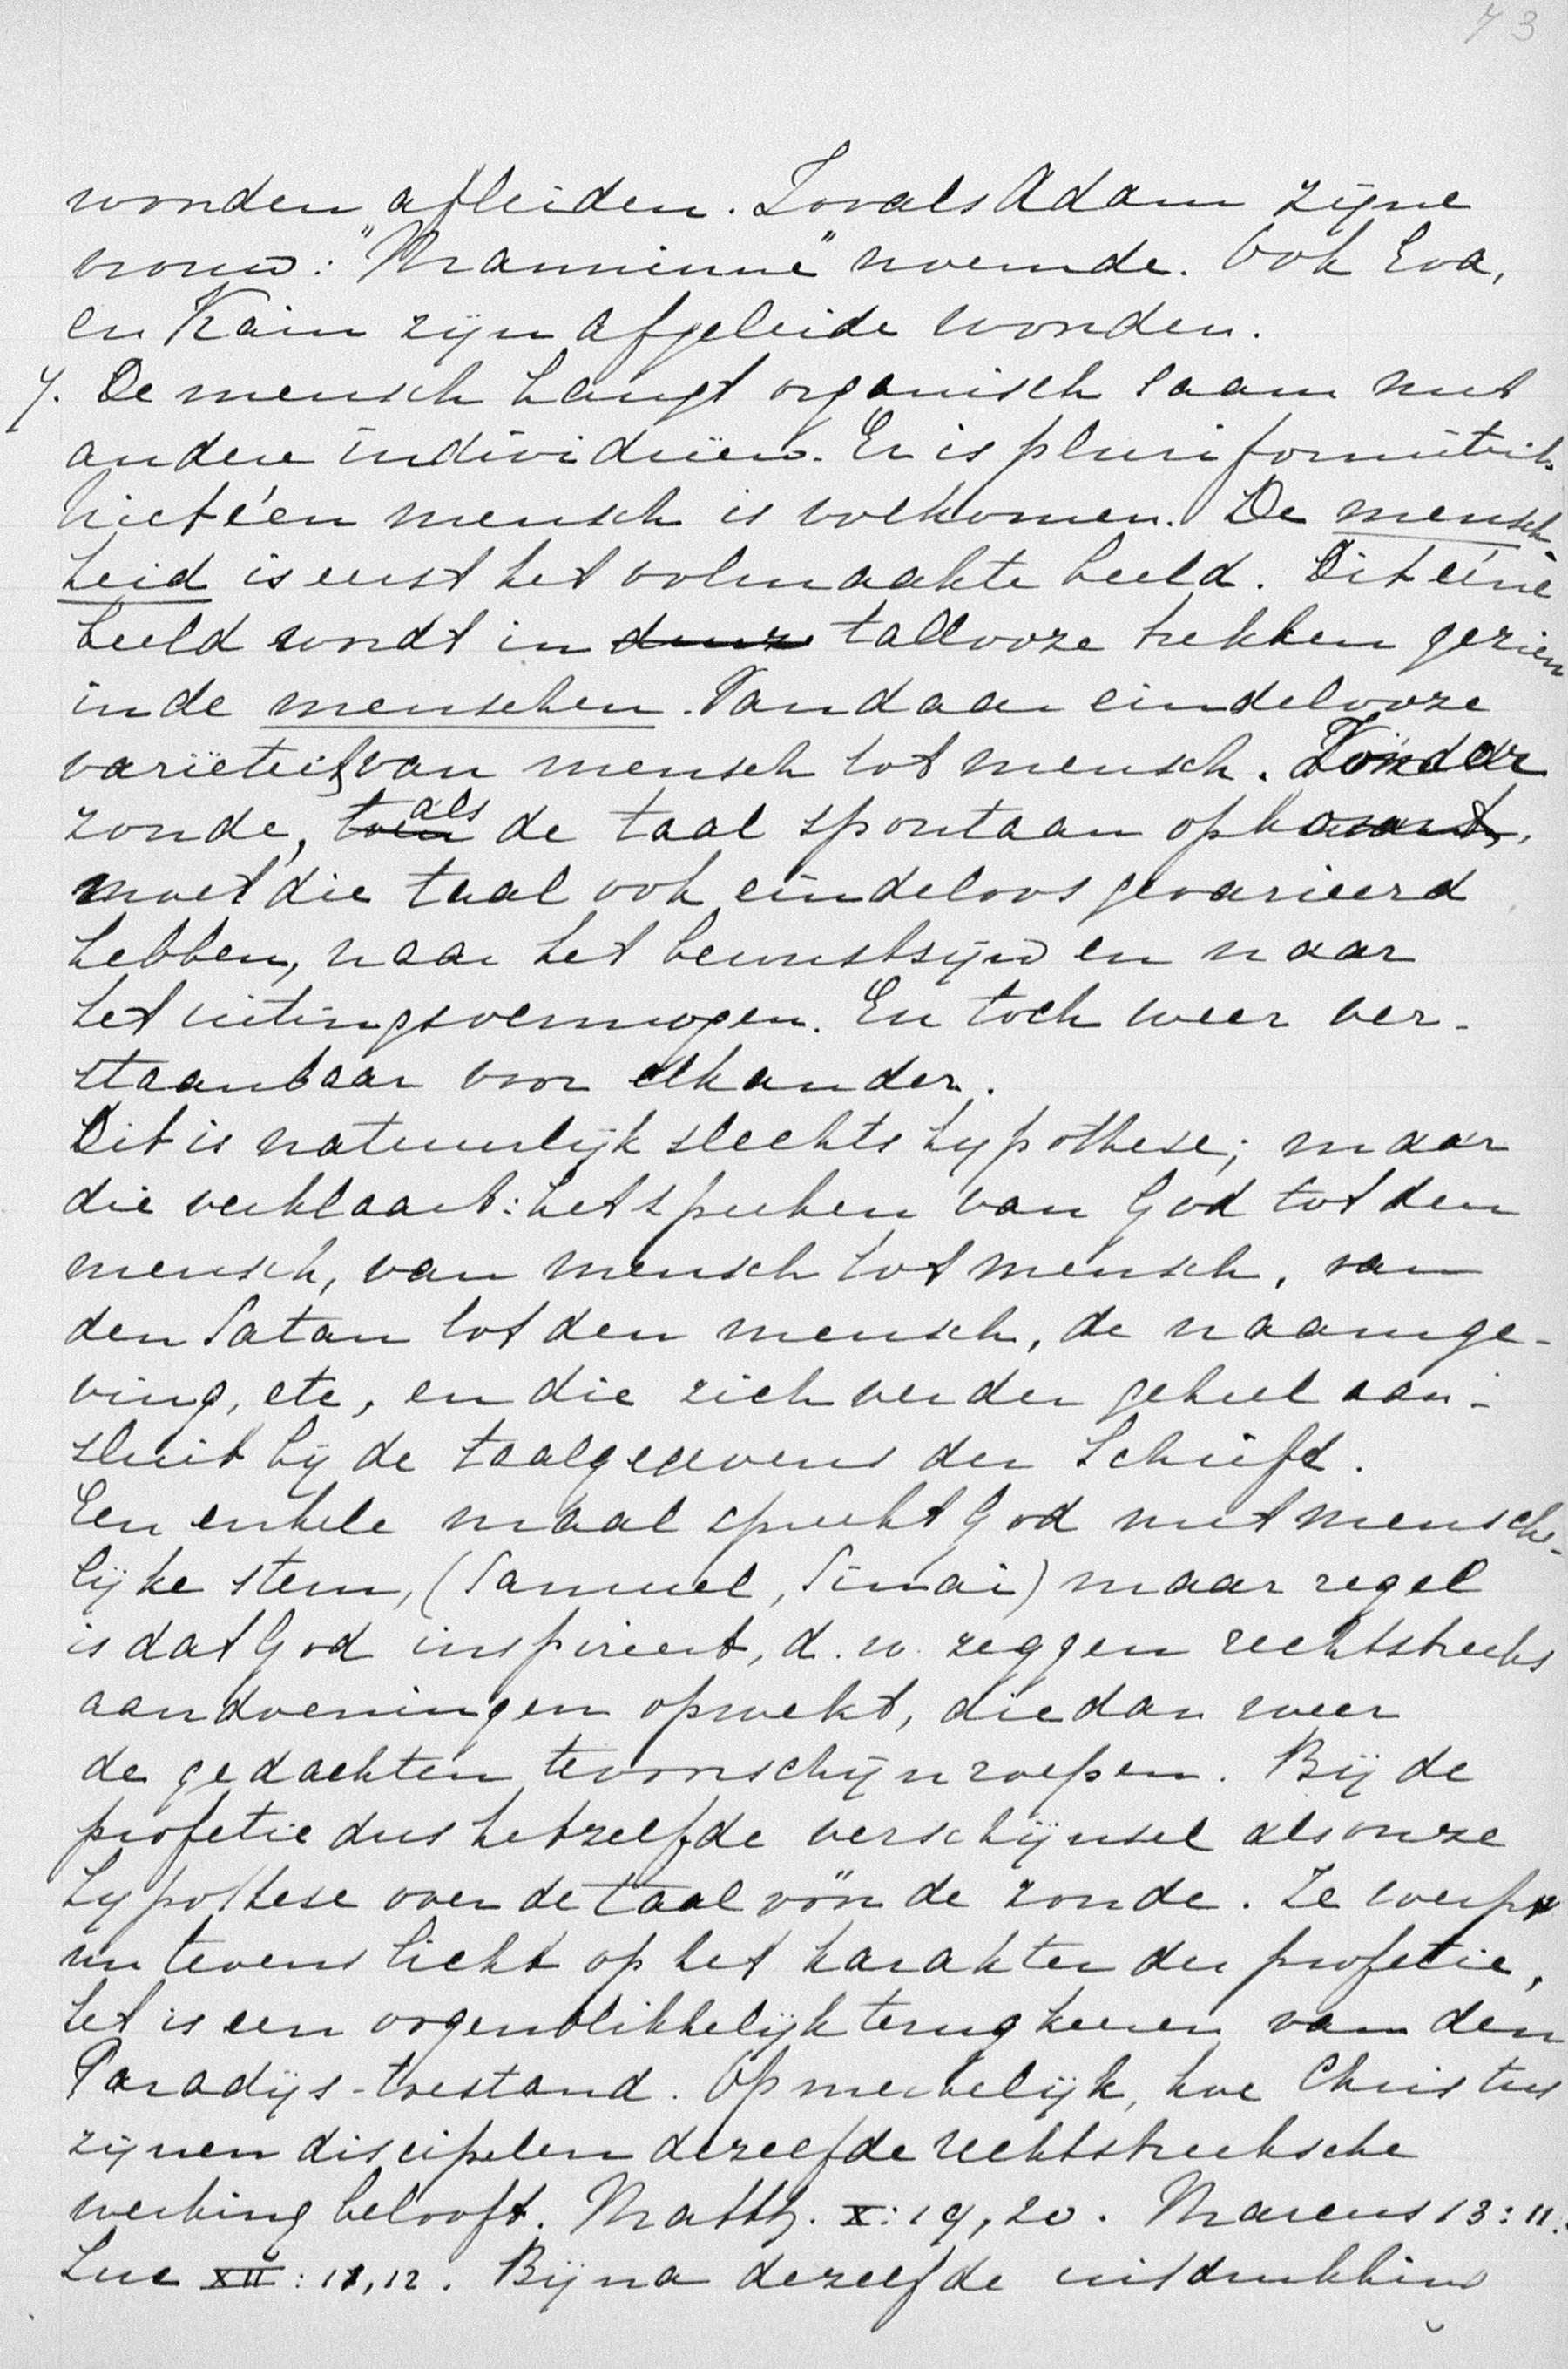 73
woorden afleiden. Zooals Adam zijne
vrouw: "Manninne" noemde. Ook Eva,
en Kaïn zijn afgeleide woorden.
7. De mensch hangt organisch saam met
andere individuën. Er is pluriformiteit.
Niet één mensch is volkomen. De mensch-
heid is eerst het volmaakte beeld. Dit ééne
beeld wordt in deze tallooze trekken gezien
in de menschen. Vandaar eindelooze
variëteit van mensch tot mensch. Zonder
zonde, toen als de taal spontaan opkwam,
moet die taal ook eindeloos gevarieerd
hebben, naar het bewustzijn en naar
het uitingsvermogen. En toch weer ver-
staanbaar voor elkander.
Dit is natuurlijk slechts hypothese; maar
die verklaart: het spreken van God tot den
mensch, van mensch tot mensch, van
den Satan tot den mensch, de naamge-
ving, etc, en die zich verder geheel aan-
sluit bij de taalgegevens der Schrift.
Een enkele maal spreekt God met mensche-
lijke stem, (Samuel, Sinaï) maar regel
is dat God inspireert, d. w. zeggen rechtstreeks
aandoeningen opwekt, die dan weer
de gedachten tevoorschijn roepen. Bij de
profetie dus hetzelfde verschijnsel als onze
hypothese over de taal vóór de zonde. Ze werpt
nu tevens licht op het karakter der profetie,
het is een oogenblikkelijk terugkeeren van den
Paradijs-toestand. Opmerkelijk, hoe Christus
zijnen discipelen dezelfde rechtstreeksche
werking belooft. Matth. X: 19, 20. Marcus 13: 11.
Luc XII: 11, 12. Bijna dezelfde uitdrukking